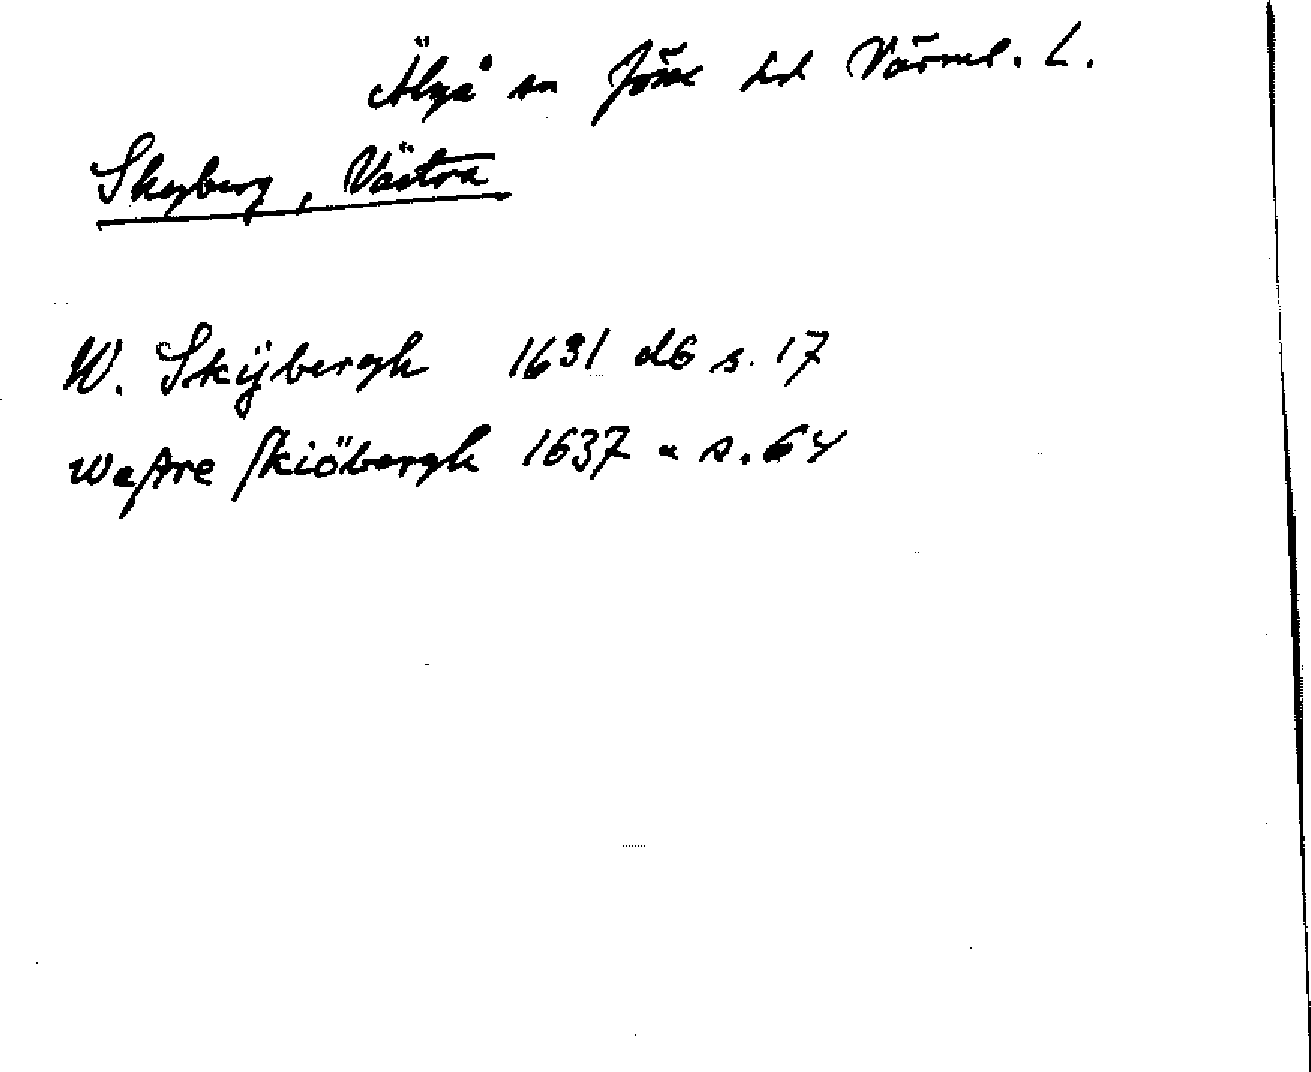 Älgå sn Jösse hd Värml. L.
Skyberg, Västra
W. Skÿbergh 1631 db s. 17
Westre Skiöbergh 1637 " s. 64